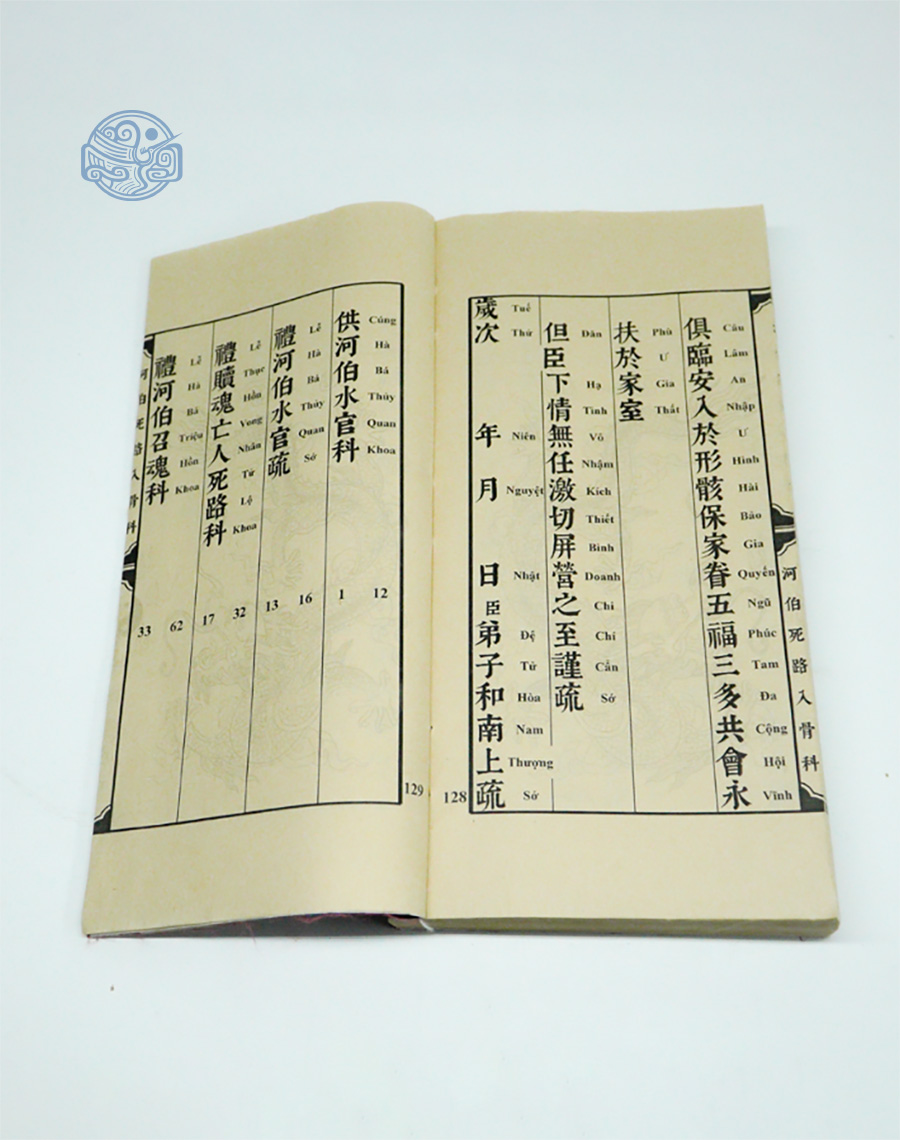 俱臨安入於形骸保家眷五福三多共會永
Câu Lâm An Nhập Ư Hình Hài Bảo Gia Quyến Ngũ Phúc Tam Đa Cộng Hội Vĩnh
扶於家室
Phù Ư Gia Thất
但臣下情無任激切屏營之至謹疏
Đãn Hạ Tình Vô Nhậm Kích Thiết Bình Doanh Chi Chí Cẩn Sớ
歲次 年 月 日 臣 弟子和南上疏
Tuế Thứ Niên Nguyệt Nhật Đệ Tử Hòa Nam Thượng Sớ
河伯死路入骨科
128
供河伯水官科
Cúng Hà Bá Thủy Quan Khoa
1 12
禮河伯水官疏
Lễ Hà Bá Thủy Quan Sớ
13 16
禮贖魂亡人死路科
Lễ Thục Hồn Vong Nhân Tử Lộ Khoa
17 32
禮河伯召魂科
Lễ Hà Bá Triệu Hồn Khoa
33 62
河伯死路入骨科
129